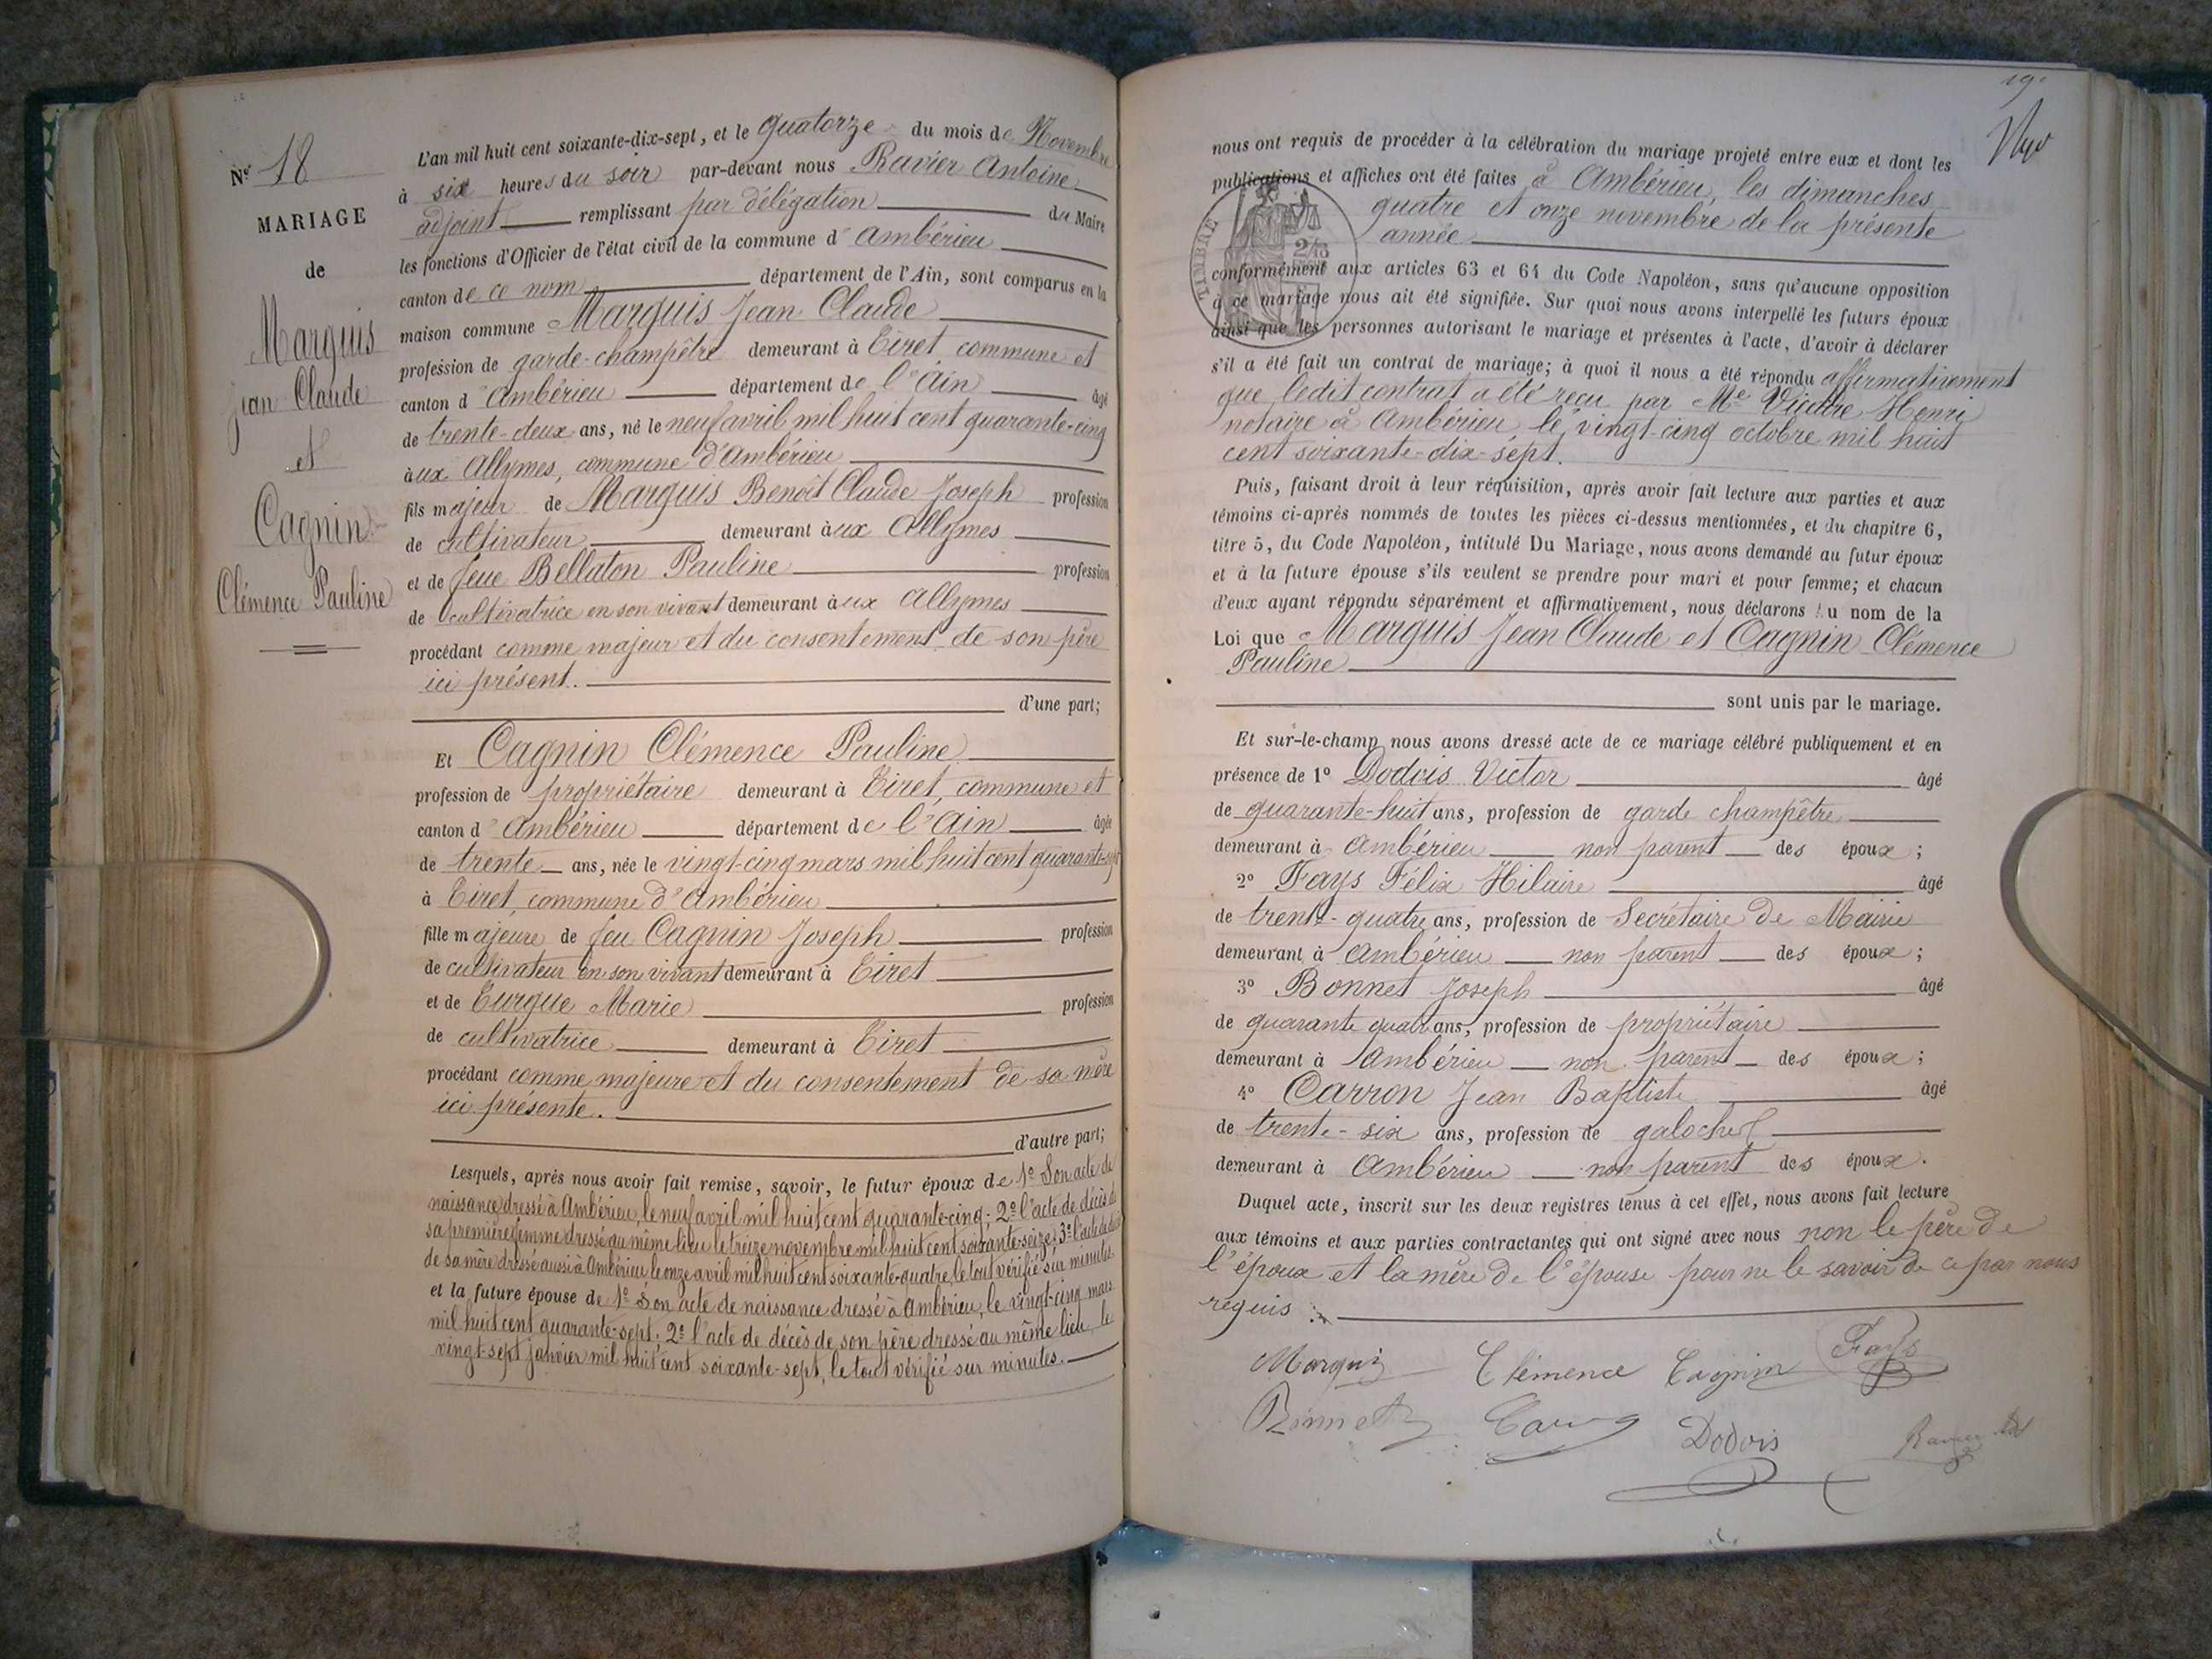 N° 18
MARIAGE
de
Marquis
jean Claude
et
Cagnin
Clémence Pauline
L'an mil huit cent soixante-dix-sept, et le quatorze du mois de Novembre
à six heures du soir par-devant nous Ravier Antoine
adjoint remplissant par délégation du Maire
les fonctions d'Officier de l'état civil de la commune d'Ambérieu
canton de ce nom département de l'Ain, sont comparus en la
maison commune Marquis Jean Claude
profession de garde-champêtre demeurant à Tiret, commune et
canton d'Ambérieu département de l'Ain âgé
de trente-deux ans, né le neuf avril mil huit cent quarante-cinq
aux Allymes, commune d'Ambérieu
fils majeur de Marquis Benoît Claude Joseph profession
de cultivateur demeurant aux Allymes
et de feue Bellaton Pauline profession
de cultivatrice en son vivant demeurant aux Allymes
procédant comme majeur et du consentement de son père
ici présent.
d'une part;
Et Cagnin Clémence Pauline
profession de propriétaire demeurant à Tiret, commune et
canton d'Ambérieu département de l'Ain âgée
de trente ans, née le vingt-cinq mars mil huit cent quarante-sept
à Tiret, commune d'Ambérieu
fille majeure de feu Cagnin Joseph profession
de cultivateur en son vivant demeurant à Tiret
et de Turgue Marie profession
de cultivatrice demeurant à Tiret
procédant comme majeure et du consentement de sa mère
ici présente.
d'autre part;
Lesquels, après nous avoir fait remise, savoir, le futur époux de 1° Son acte de
naissance dressé à Ambérieu, le neuf avril mil huit cent quarante-cinq; 2° l'acte de décès de
sa première femme dressé au même lieu le treize novembre mil huit cent soixante-seize; 3° l'acte de décès
de sa mère dressé aussi à Ambérieu le onze avril mil huit cent soixante-quatre, le tout vérifié sur minutes
et la future épouse de 1° Son acte de naissance dressé à Ambérieu, le vingt-cinq mars
mil huit cent quarante-sept. 2° l'acte de décès de son père dressé au même lieu, le
vingt-sept janvier mil huit cent soixante-sept, le tout vérifié sur minutes.
19
nous ont requis de procéder à la célébration du mariage projeté entre eux et dont les
publications et affiches ont été faites à Ambérieu, les dimanches
quatre et onze novembre de la présente
année
TIMBRE
conformément aux articles 63 et 64 du Code Napoléon, sans qu'aucune opposition
à ce mariage nous ait été signifiée. Sur quoi nous avons interpellé les futurs époux
ainsi que les personnes autorisant le mariage et présentes à l'acte, d'avoir à déclarer
s'il a été fait un contrat de mariage; à quoi il nous a été répondu affirmativement
que ledit contrat a été reçu par Me Victore Henri
notaire à Ambérieu le vingt-cinq octobre mil huit
cent soixante-dix-sept.
Puis, faisant droit à leur réquisition, après avoir fait lecture aux parties et aux
témoins ci-après nommés de toutes les pièces ci-dessus mentionnées, et du chapitre 6,
titre 5, du Code Napoléon, intitulé Du Mariage, nous avons demandé au futur époux
et à la future épouse s'ils veulent se prendre pour mari et pour femme; et chacun
d'eux ayant répondu séparément et affirmativement, nous déclarons au nom de la
Loi que Marquis Jean Claude et Cagnin Clémence
Pauline
sont unis par le mariage.
Et sur-le-champ nous avons dressé acte de ce mariage célébré publiquement et en
présence de 1° Dodois Victor âgé
de quarante-huit ans, profession de garde champêtre
demeurant à Ambérieu non parent des époux;
2° Fays Félix Hilaire âgé
de trente-quatre ans, profession de Secrétaire de Mairie
demeurant à Ambérieu non parent des époux;
3° Bonnet Joseph âgé
de quarante quatre ans, profession de propriétaire
demeurant à Ambérieu non parent des époux;
4° Carron Jean Baptiste âgé
de trente-six ans, profession de galocher
demeurant à Ambérieu non parent des époux.
Duquel acte, inscrit sur les deux registres tenus à cet effet, nous avons fait lecture
aux témoins et aux parties contractantes qui ont signé avec nous non le père de
l'époux et la mère de l'épouse pour ne le savoir de ce par nous
requis
Marquis Clémence Cagnin Fays
Bonnet Dodois Ravier